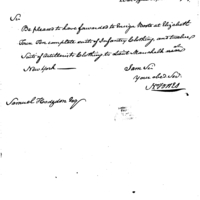 Sir
Be pleased to have forwarded to Ensign Meeks at Elizabeth
Town Ten complete suits of Infantry Clothing and twelve
Suits of Artillerists Clothing to Lieut
New York —
I am Sir
Your obed Ser
Samuel Hodgdon Esqr